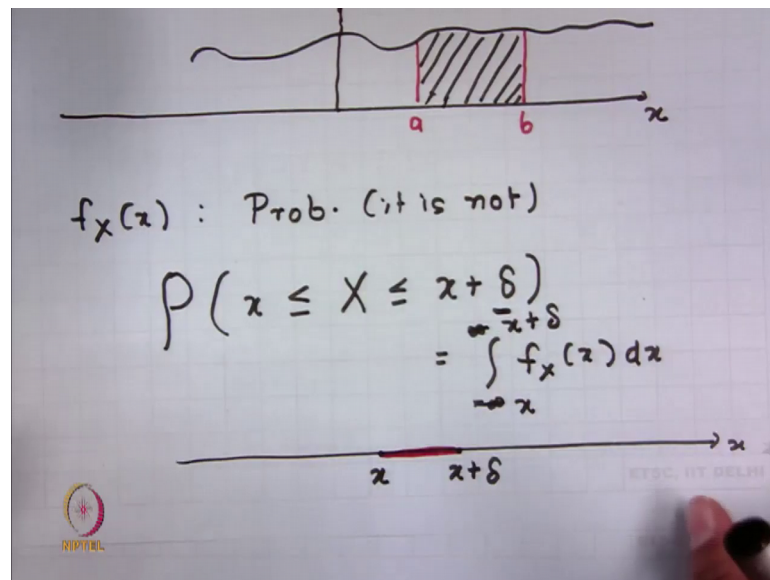 a b x
f_X(x) : Prob. (it is not)
P(x ≤ X ≤ x + δ)
x+δ
= ∫ f_X(x) dx
x
x
x x+δ
ETSC, IIT DELHI
NPTEL